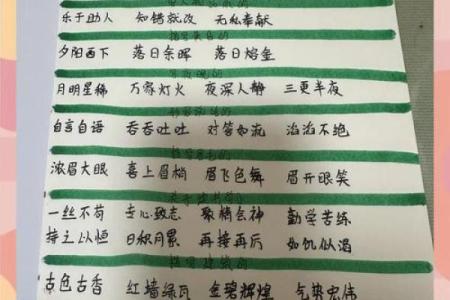 乐于助人 知错就改 无私奉献
夕阳西下 落日余晖 落日熔金
月明星稀 万家灯火 夜深人静 三更半夜
自言自语 吞吞吐吐 对答如流 滔滔不绝
浓眉大眼 喜上眉梢 眉飞色舞 眉开眼笑
一丝不苟 专心致志 聚精会神 勤学苦练
持之以恒 日积月累 再接再厉 如饥似渴
古色古香 红墙绿瓦 金碧辉煌 气势宏伟